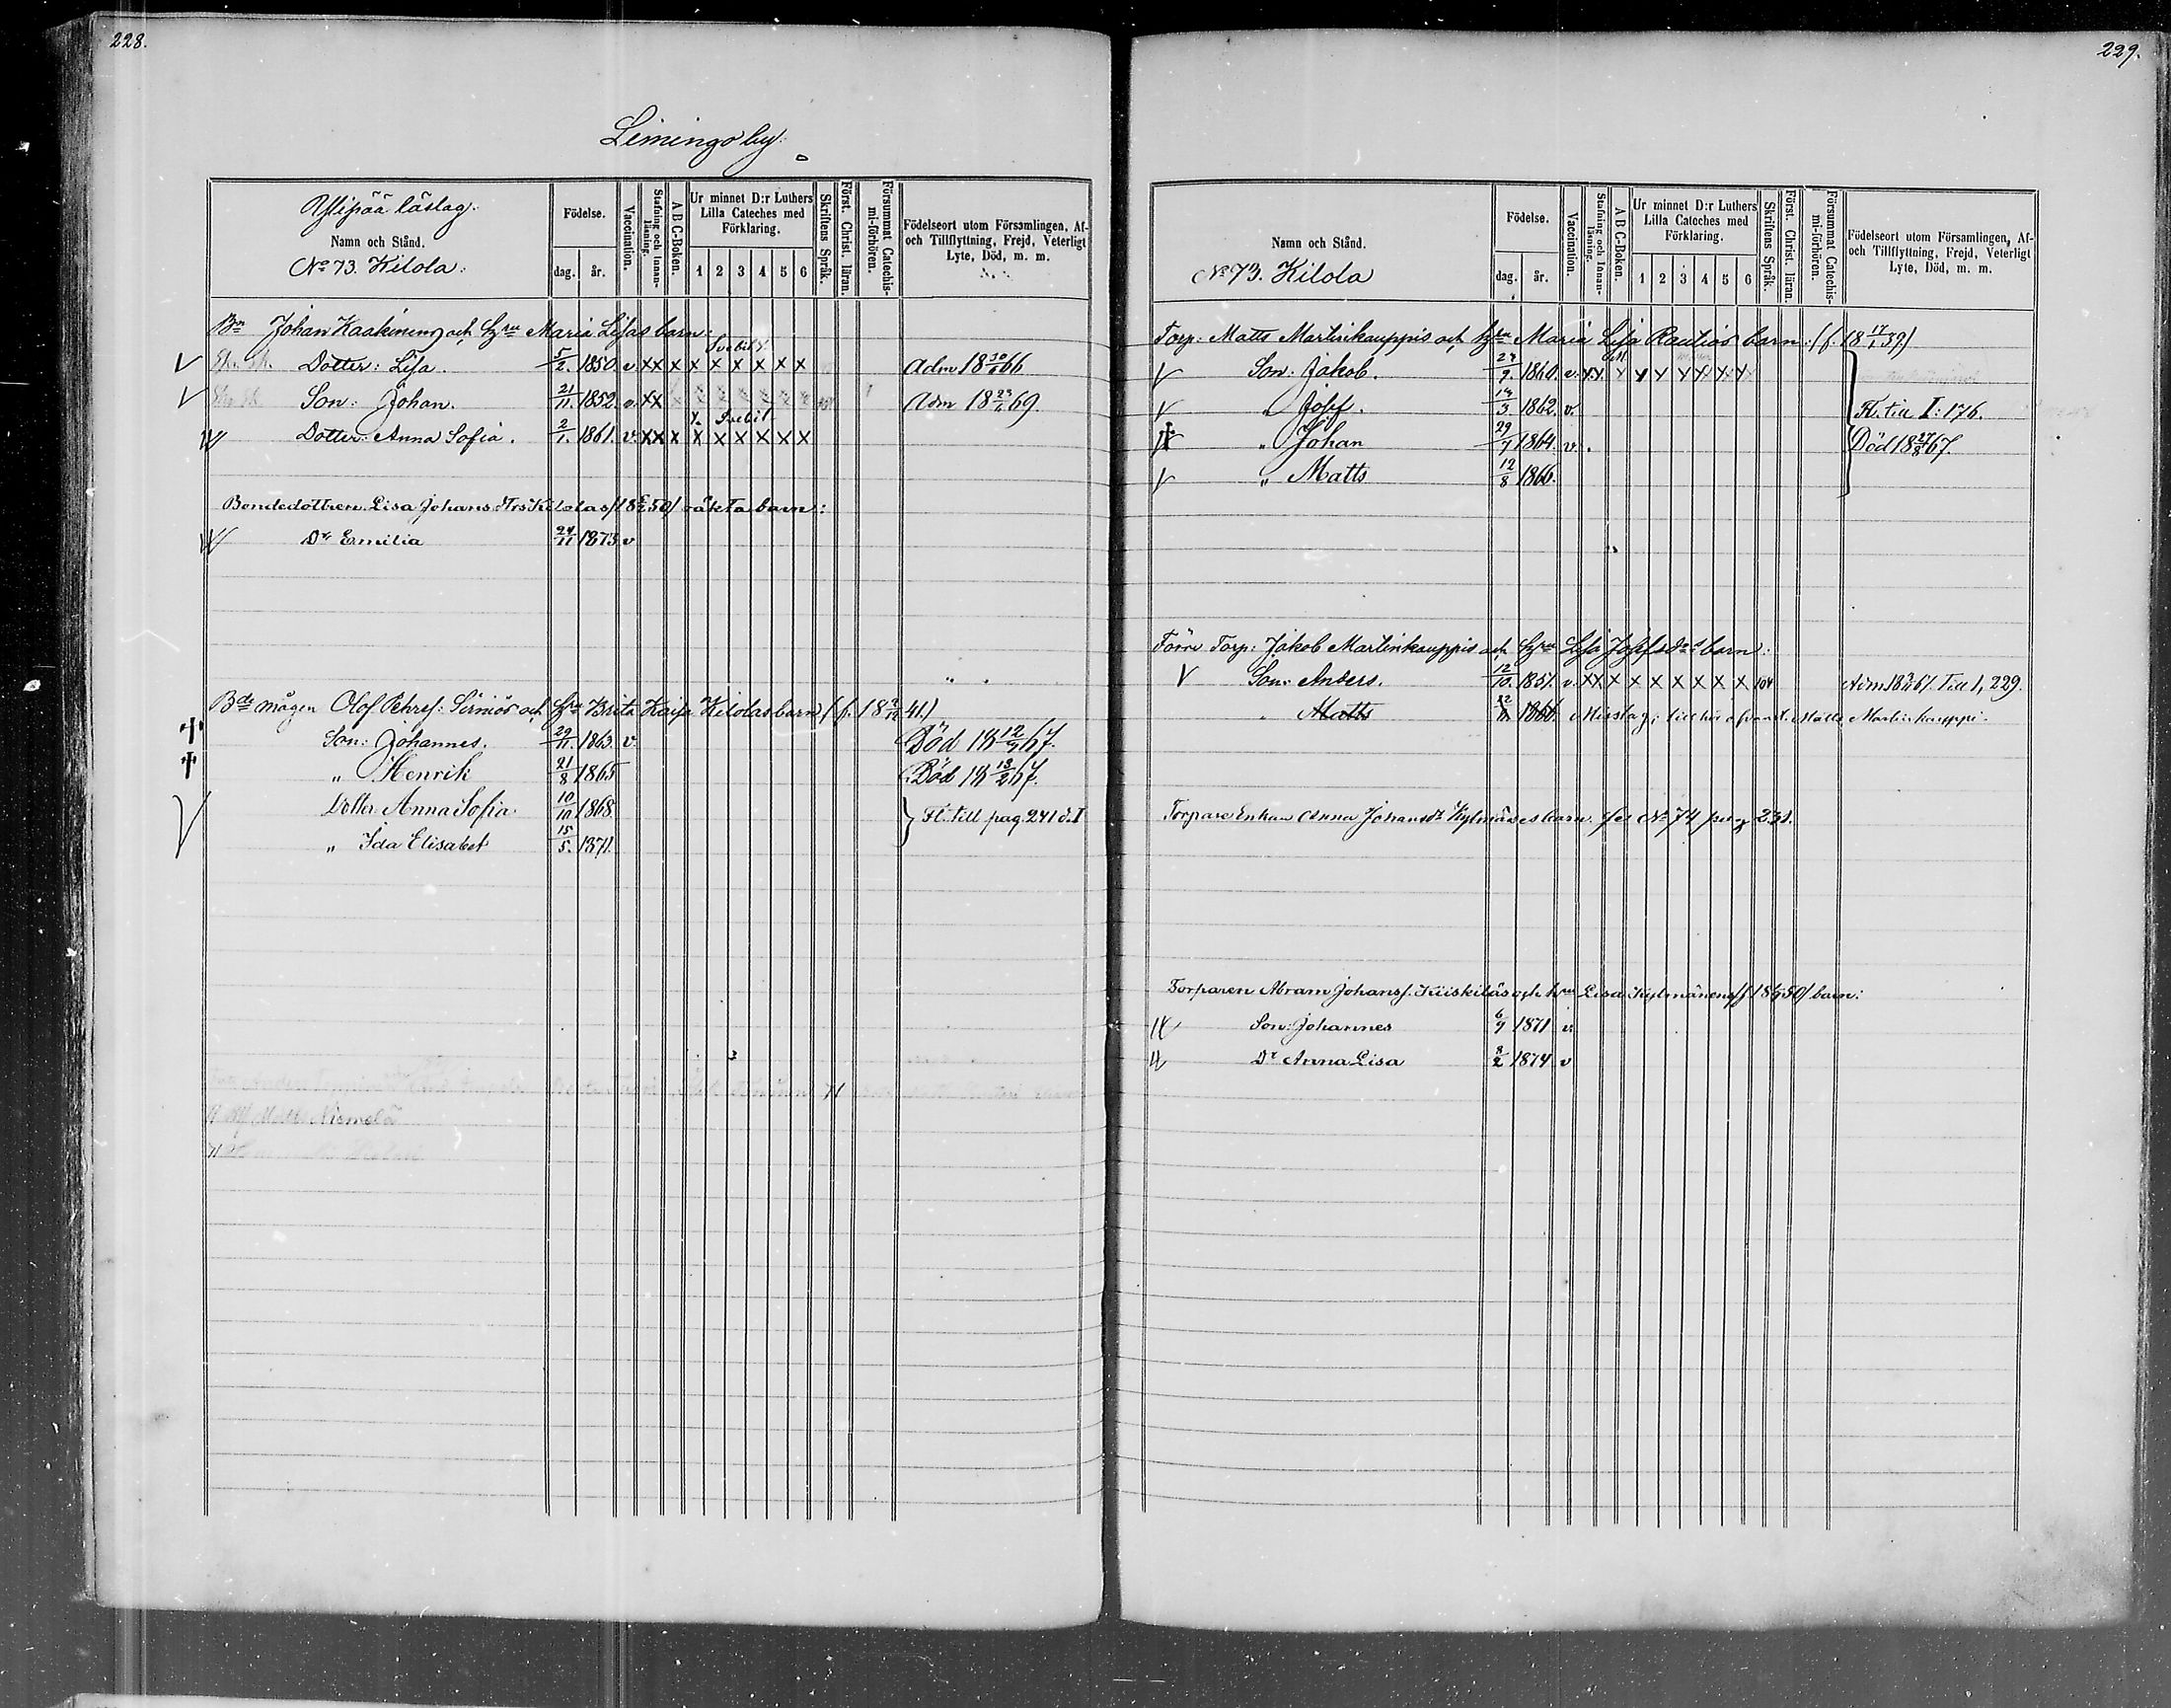 228.
Limingo by.
Ylipää läslag.
Namn och Stånd.
No 73. Kilola.
Födelse.
dag. år.
Vaccination.
Stafning och Innanläsning.
A B C-Boken.
Ur minnet D:r Luthers Lilla Cateches med Förklaring.
1 2 3 4 5 6
Skriftens Språk.
Först. Christ. läran.
Försummat Catechismi-förhören.
Födelseort utom Församlingen, Af- och Tillflyttning, Frejd, Veterligt Lyte, Död, m. m.
Bn Johan Kaakinens och Hru Maria Lisas barn:
Svebil
Dotter: Lisa. 5/2. 1850. v. x x x x x x x x x Adm 18 30/6 66
Son: Johan. 21/11. 1852. v. x x Adm 18 69.
Svebil
Dotter: Anna Sofia. 2/1. 1861. v. x x x x x x x x x
Bondedottren Lisa Johans dtrs Kilolas /18 50/ oäkta barn:
Dr Emilia 24/11 1873 v
Bds mågen Olof Pehrss: Sirniös och Hru Brita Kaisa Kilolas barn (f. 18 41.)
Son: Johannes. 29/11. 1863. v. Död 18 12/9 67.
" Henrik 21/8 1865 Död 18 13/2 67.
Dotter Anna Sofia 10/10 1868. Fl. till pag. 241 d. I
" Ida Elisabet 15/5. 1871.
Matts Niemelä
229.
Namn och Stånd.
No 73. Kilola
Födelse.
dag. år.
Vaccination.
Stafning och Innanläsning.
A B C-Boken.
Ur minnet D:r Luthers Lilla Cateches med Förklaring.
1 2 3 4 5 6
Skriftens Språk.
Först. Christ. läran.
Försummat Catechismi-förhören.
Födelseort utom Församlingen, Af- och Tillflyttning, Frejd, Veterligt Lyte, Död, m. m.
Torp: Matts Martinkauppis och Hru Maria Lisa Rautios barn: (f. 18 17/1 39)
Son: Jakob. 1860. v. x x
" Josef. 1862. v. Fl. till I: 176.
" Johan 29/7 1864. v. Död 18 27/8 67.
" Matts 12/8 1866.
Förre Torp: Jakob Martinkauppis och Hru Lisa Josefsdrs barn:
Son: Anders. 12/10. 1851. v. x x x x x x x x x Adm 18 67. Till 1, 229.
" Matts 12/8 1866. Misstag; tillhör ofvanst. Matts Martinkauppi.
Torpare Enkan Anna Johansdr Kylmäses barn. se No 74 pag 231.
Torparen Abram Johanss. Kiiskiläs och hru Lisa Kylmänens /f 18 50/ barn:
Son: Johannes 6/9 1871 v.
Dr Anna Lisa 8/2 1874 v